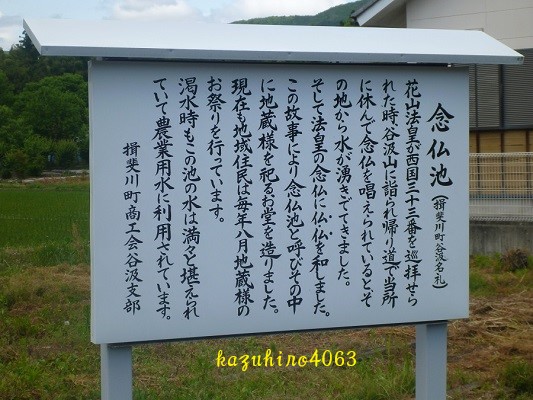 念仏池(揖斐川町谷汲名礼)
花山法皇が西国三十三番を巡拝せら
れた時谷汲山に詣られ帰り道で当所
に休んで念仏を唱えられているとそ
の地から水が湧きでてきました。
そして法皇の念仏に仏仏を和しました。
この故事により念仏池と呼びその中
に地蔵様を祀るお堂を造りました。
現在も地域住民は毎年八月地蔵様の
お祭りを行っています。
渇水時もこの池の水は満々と堪えられ
ていて農業用水に利用されています。
揖斐川町商工会谷汲支部
kazuhiro4063